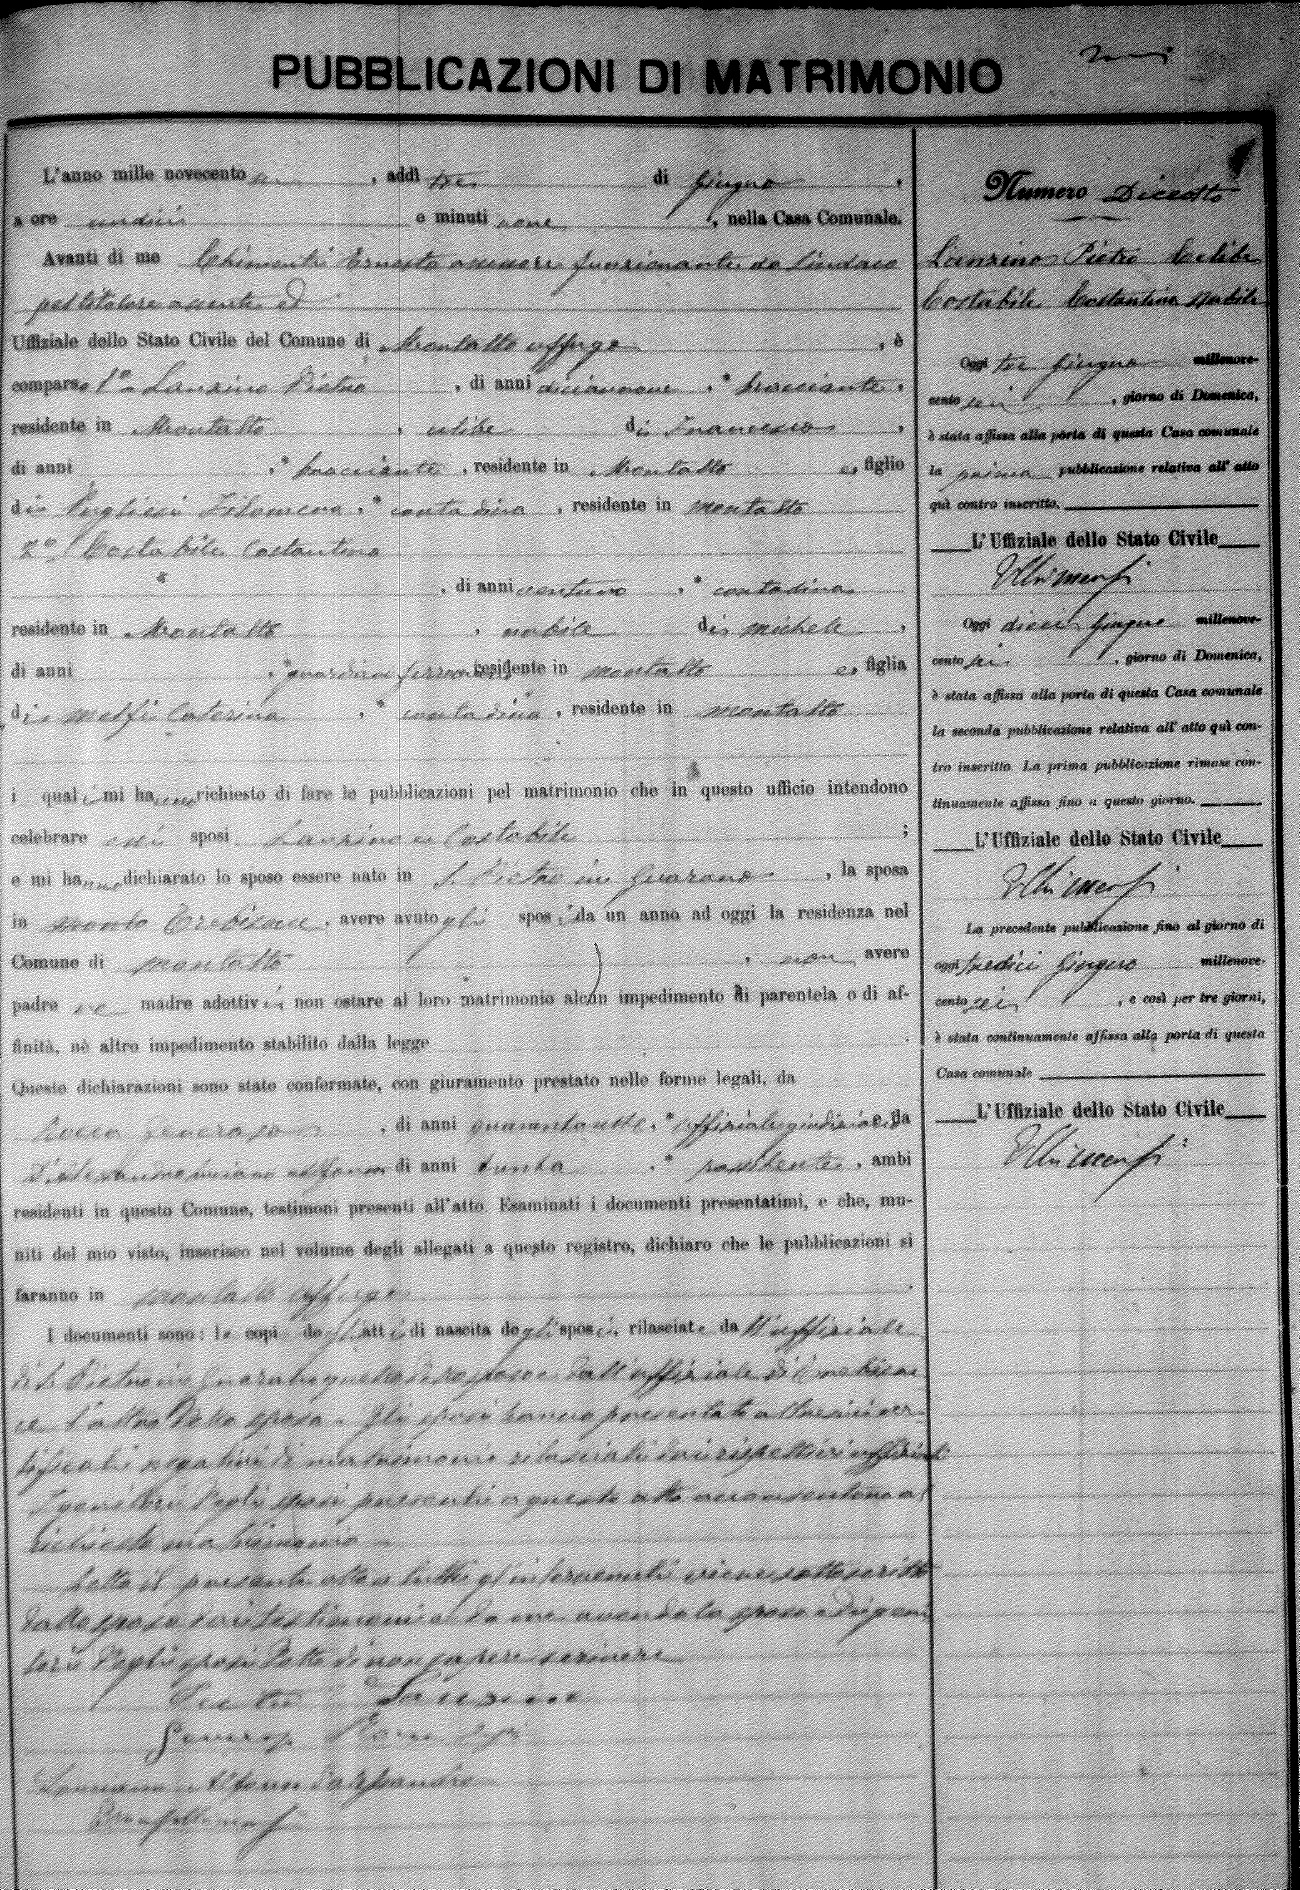 PUBBLICAZIONI DI MATRIMONIO
L'anno mille novecento sei, addì tre di Giugno,
a ore undici e minuti nove, nella Casa Comunale.
Avanti di me Chimenti Ernesto assessore funzionante da Sindaco
pel titolare assente ed
Uffiziale dello Stato Civile del Comune di Montalto Uffugo, è
comparso 1º Lanzino Pietro, di anni diciannove, bracciante,
residente in Montalto, celibe di Francesco,
di anni , bracciante, residente in Montalto e, figlio
di Pugliesi Filomena, contadina, residente in Montalto
2º Costabile Costantina
, di anni ventuno, contadina
residente in Montalto, nubile di Michele,
di anni , residente in Montalto e, figlia
di Caterina, contadina, residente in Montalto
i quali mi hanno richiesto di fare le pubblicazioni pel matrimonio che in questo ufficio intendono
celebrare essi sposi Lanzino e Costabile;
e mi hanno dichiarato lo sposo essere nato in S. Pietro in Guarano, la sposa
in , avere avuto gli sposi da un anno ad oggi la residenza nel
Comune di Montalto, non avere
padre ne madre adottivi non ostare al loro matrimonio alcun impedimento di parentela o di af-
finità, nè altro impedimento stabilito dalla legge
Queste dichiarazioni sono state confermate, con giuramento prestato nelle forme legali, da
Rocco, di anni , uffiziale giudiziario e da
di anni trenta, possidente, ambi
residenti in questo Comune, testimoni presenti all'atto. Esaminati i documenti presentatimi, e che, mu-
niti del mio visto, inserisco nel volume degli allegati a questo registro, dichiaro che le pubblicazioni si
faranno in Montalto Uffugo.
I documenti sono: le copie degli atti di nascita degli sposi, rilasciate da
di S. Pietro in Guarano quella dello sposo e dall'uffiziale di
l'altra della sposa. Gli sposi hanno presentato
negativi di matrimonio rilasciati dai rispettivi uffiziali
I genitori degli sposi presenti a questo atto acconsentono al
richiesto matrimonio
Letto il presente atto a tutti gl'intervenuti viene sottoscritto
dallo sposo dai testimoni e da me avendo la sposa ed i geni
tori degli sposi detto di non sapere scrivere
Pietro Lanzino
Numero Diciotto
Lanzino Pietro Celibe
Costabile Costantina nubile
Oggi tre Giugno millenove-
cento sei, giorno di Domenica,
è stata affissa alla porta di questa Casa comunale
la prima pubblicazione relativa all'atto
quì contro inscritto.
L'Uffiziale dello Stato Civile
EChimenti
Oggi dieci Giugno millenove-
cento sei, giorno di Domenica,
è stata affissa alla porta di questa Casa comunale
la seconda pubblicazione relativa all'atto quì con-
tro inscritto. La prima pubblicazione rimase con-
tinuamente affissa fino a questo giorno.
L'Uffiziale dello Stato Civile
EChimenti
La precedente pubblicazione fino al giorno di
oggi tredici Giugno millenove-
cento sei, e così per tre giorni,
è stata continuamente affissa alla porta di questa
Casa comunale
L'Uffiziale dello Stato Civile
EChimenti